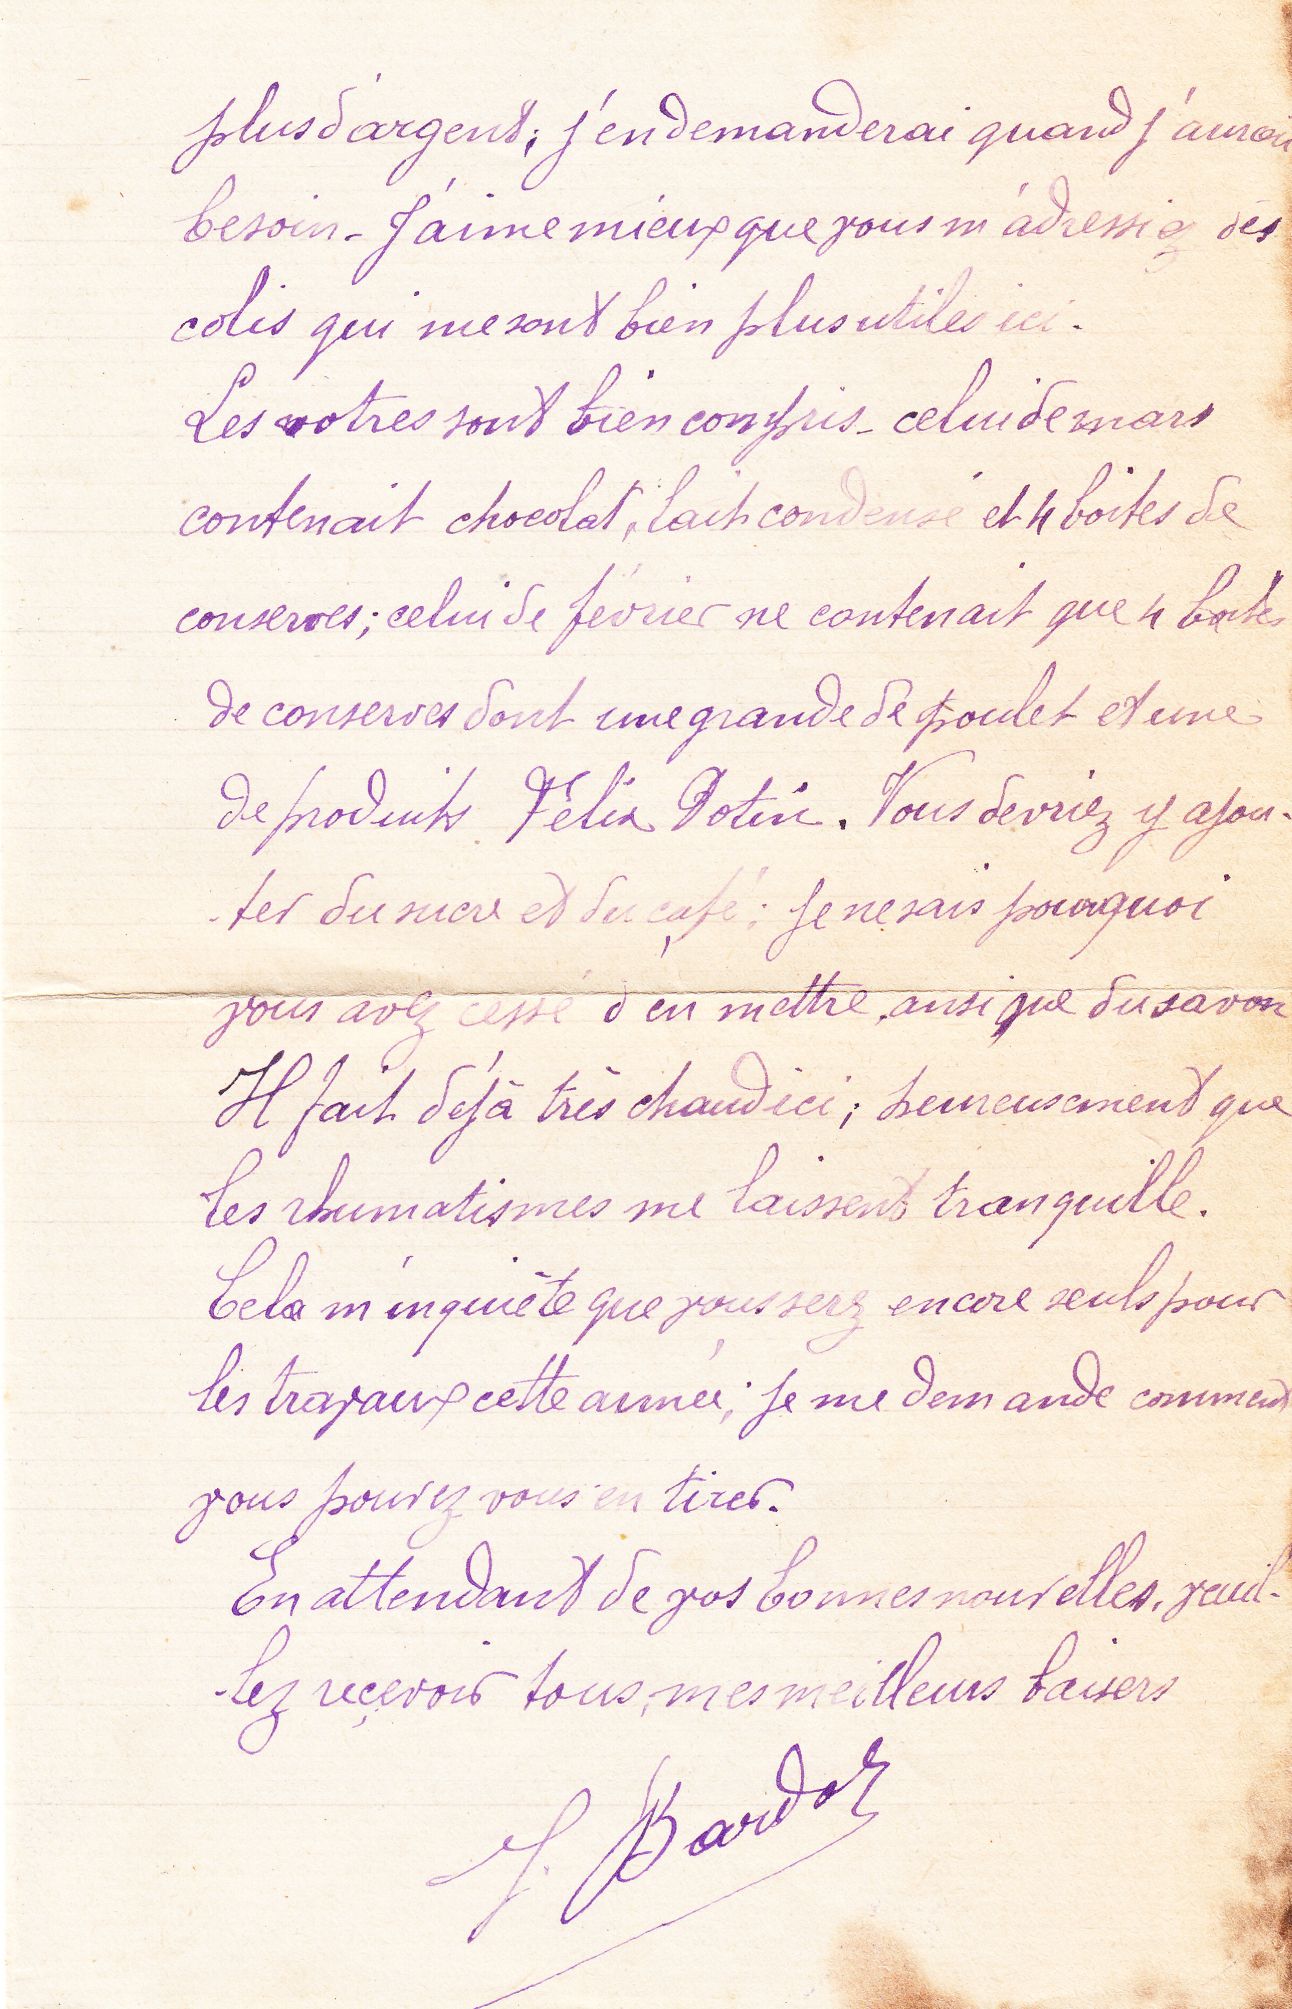 plus d'argent; j'en demanderai quand j'aurai
besoin - J'aime mieux que vous m'adressiez des
colis qui me sont bien plus utiles ici -
Les votres sont bien compris - celui de mars
contenait chocolat, lait condensé et 4 boites de
conserves; celui de février ne contenait que 4 boites
de conserves dont une grande de poulet et une
de produits Félix Potin. Vous devriez y ajou-
-ter du sucre et du café; je ne sais pourquoi
vous avez cessé d'en mettre, ansi que du savon
Il fait déjà très chaud ici; heureusement que
les rhumatismes me laissent tranquille.
Cela m'inquiète que vous serez encore seuls pour
les travaux cette année; je me demande comment
vous pouvez vous en tirer.
En attendant de vos bonnes nouvelles, veuil-
-lez reçevoir tous, mes meilleurs baisers
J. Bardol